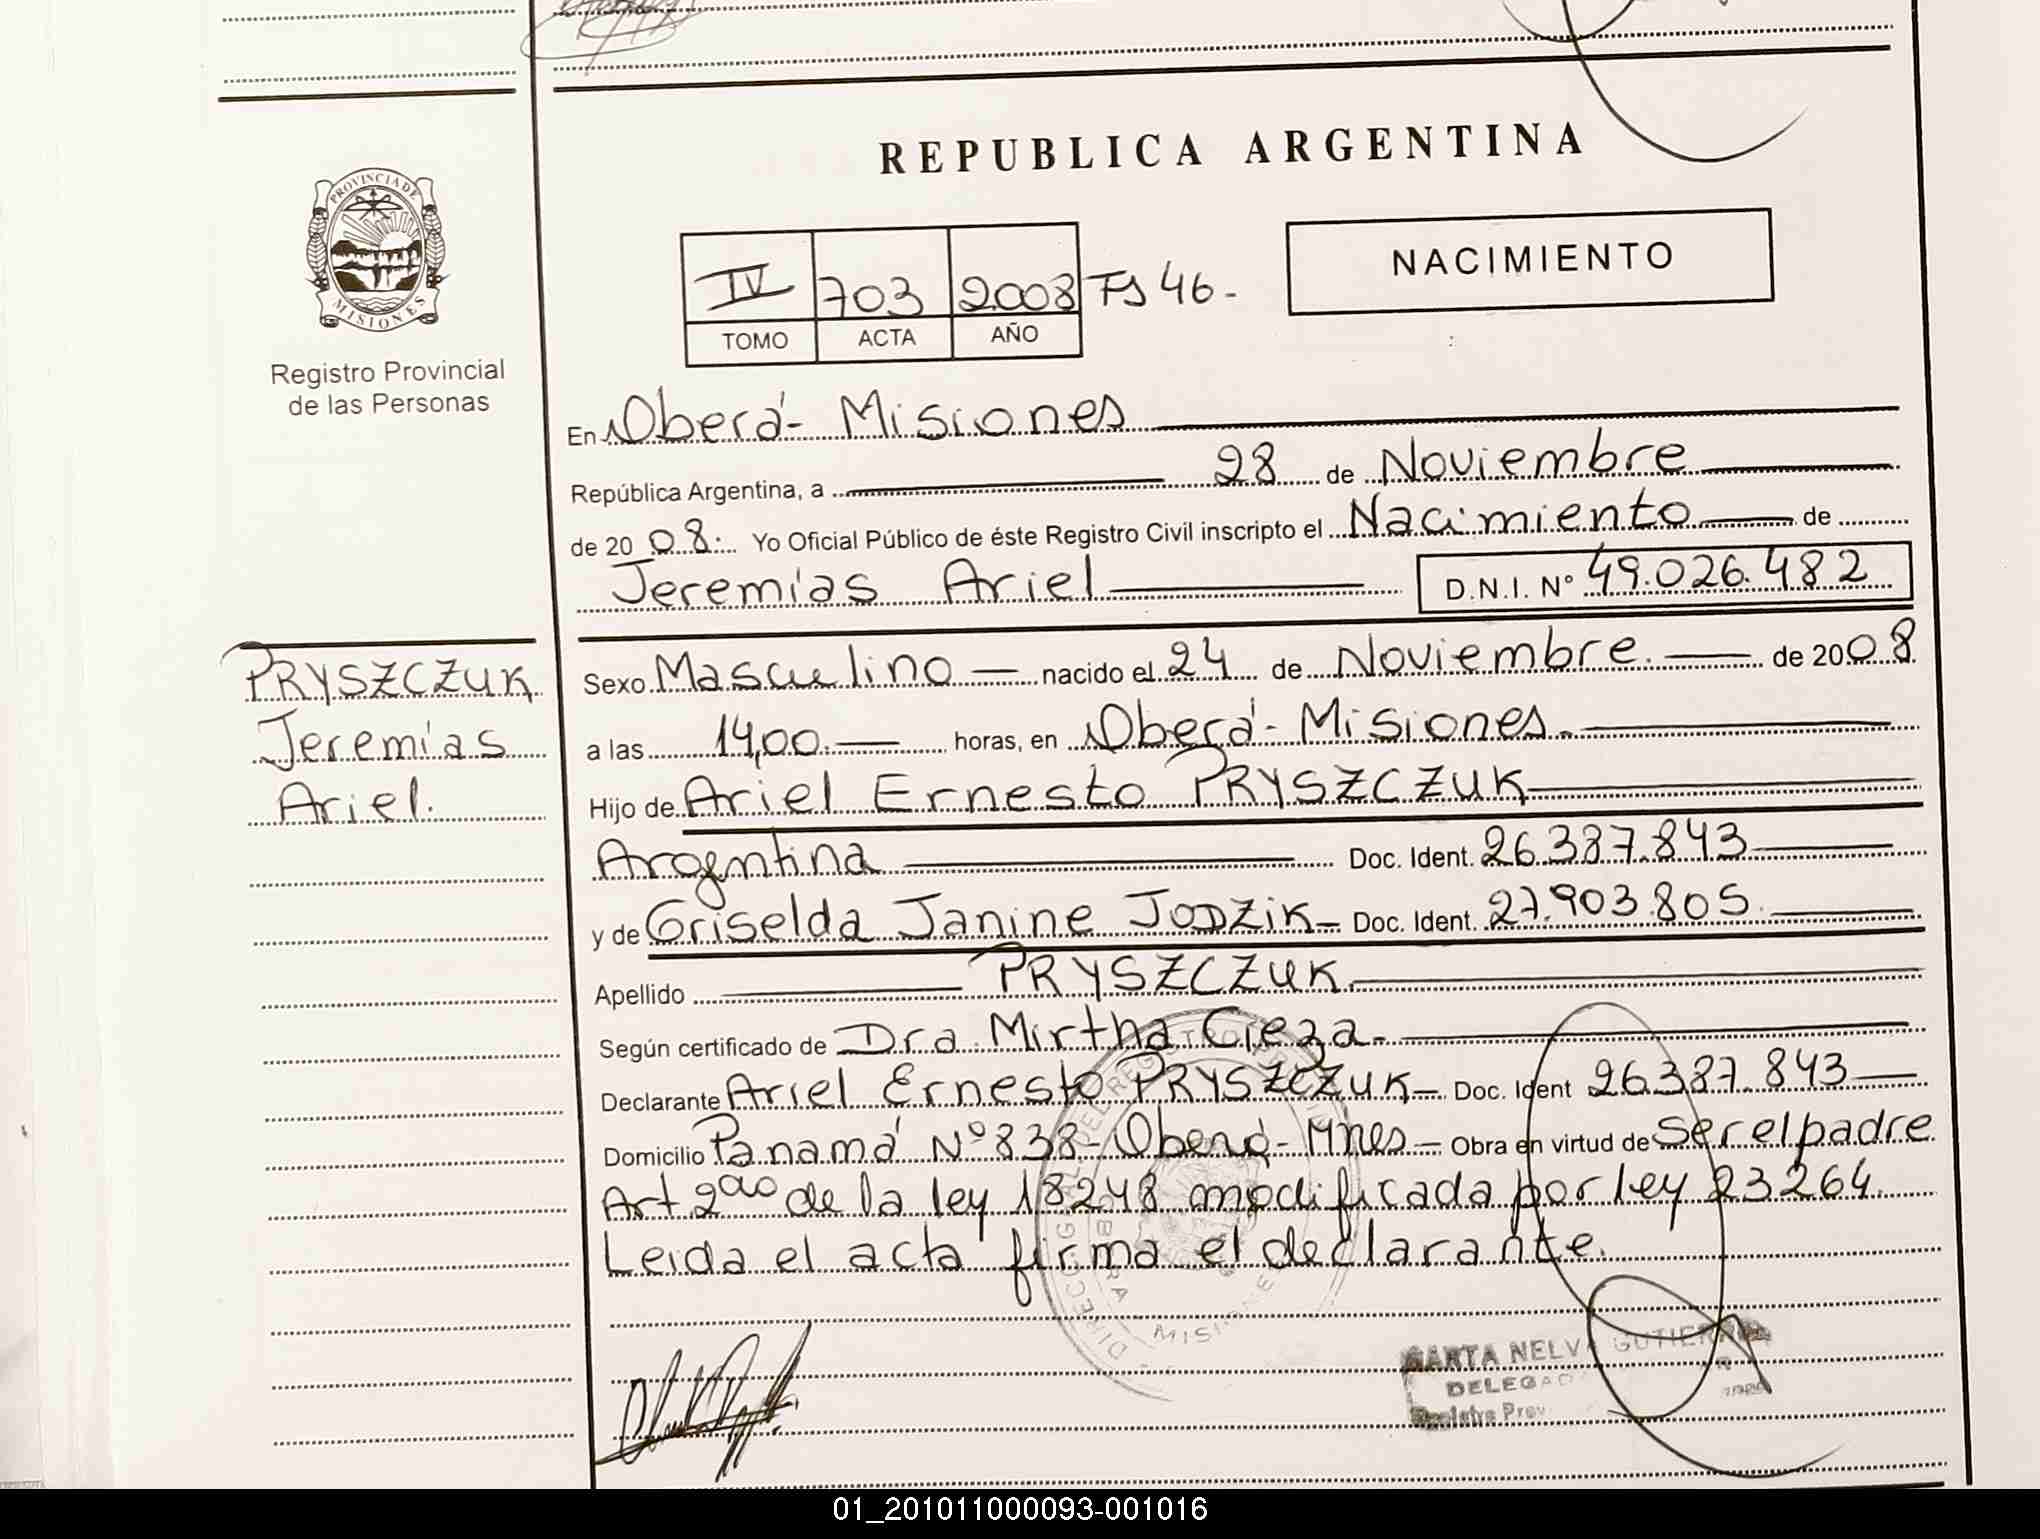 REPUBLICA ARGENTINA
PROVINCIA DE
MISIONES
Registro Provincial
de las Personas
NACIMIENTO
IV 703 2008 Fs 46-
TOMO ACTA AÑO
En Oberá - Misiones
República Argentina, a 28 de Noviembre
de 2008. Yo Oficial Público de éste Registro Civil inscripto el Nacimiento de
Jeremías Ariel D.N.I. Nº 49.026.482
PRYSZCZUK
Jeremías
Ariel.
Sexo Masculino nacido el 24 de Noviembre. de 2008.
a las 14,00. horas, en Oberá - Misiones.
Hijo de Ariel Ernesto PRYSZCZUK
Argentina Doc. Ident. 26.387.843
y de Griselda Janine JODZIK Doc. Ident. 27.903.805.
Apellido PRYSZCZUK
Según certificado de Dra. Mirtha Cieza.
Declarante Ariel Ernesto PRYSZCZUK Doc. Ident 26.387.843
Domicilio Panamá Nº 838 - Oberá - Mnes Obra en virtud de Ser el padre
Art 2do de la ley 18248 modificada por ley 23264.
Leida el acta firma el declarante.
MISIONE
MARTA NELVA GUTIERREZ
DELEGAD
Registro Prov
01_201011000093-001016